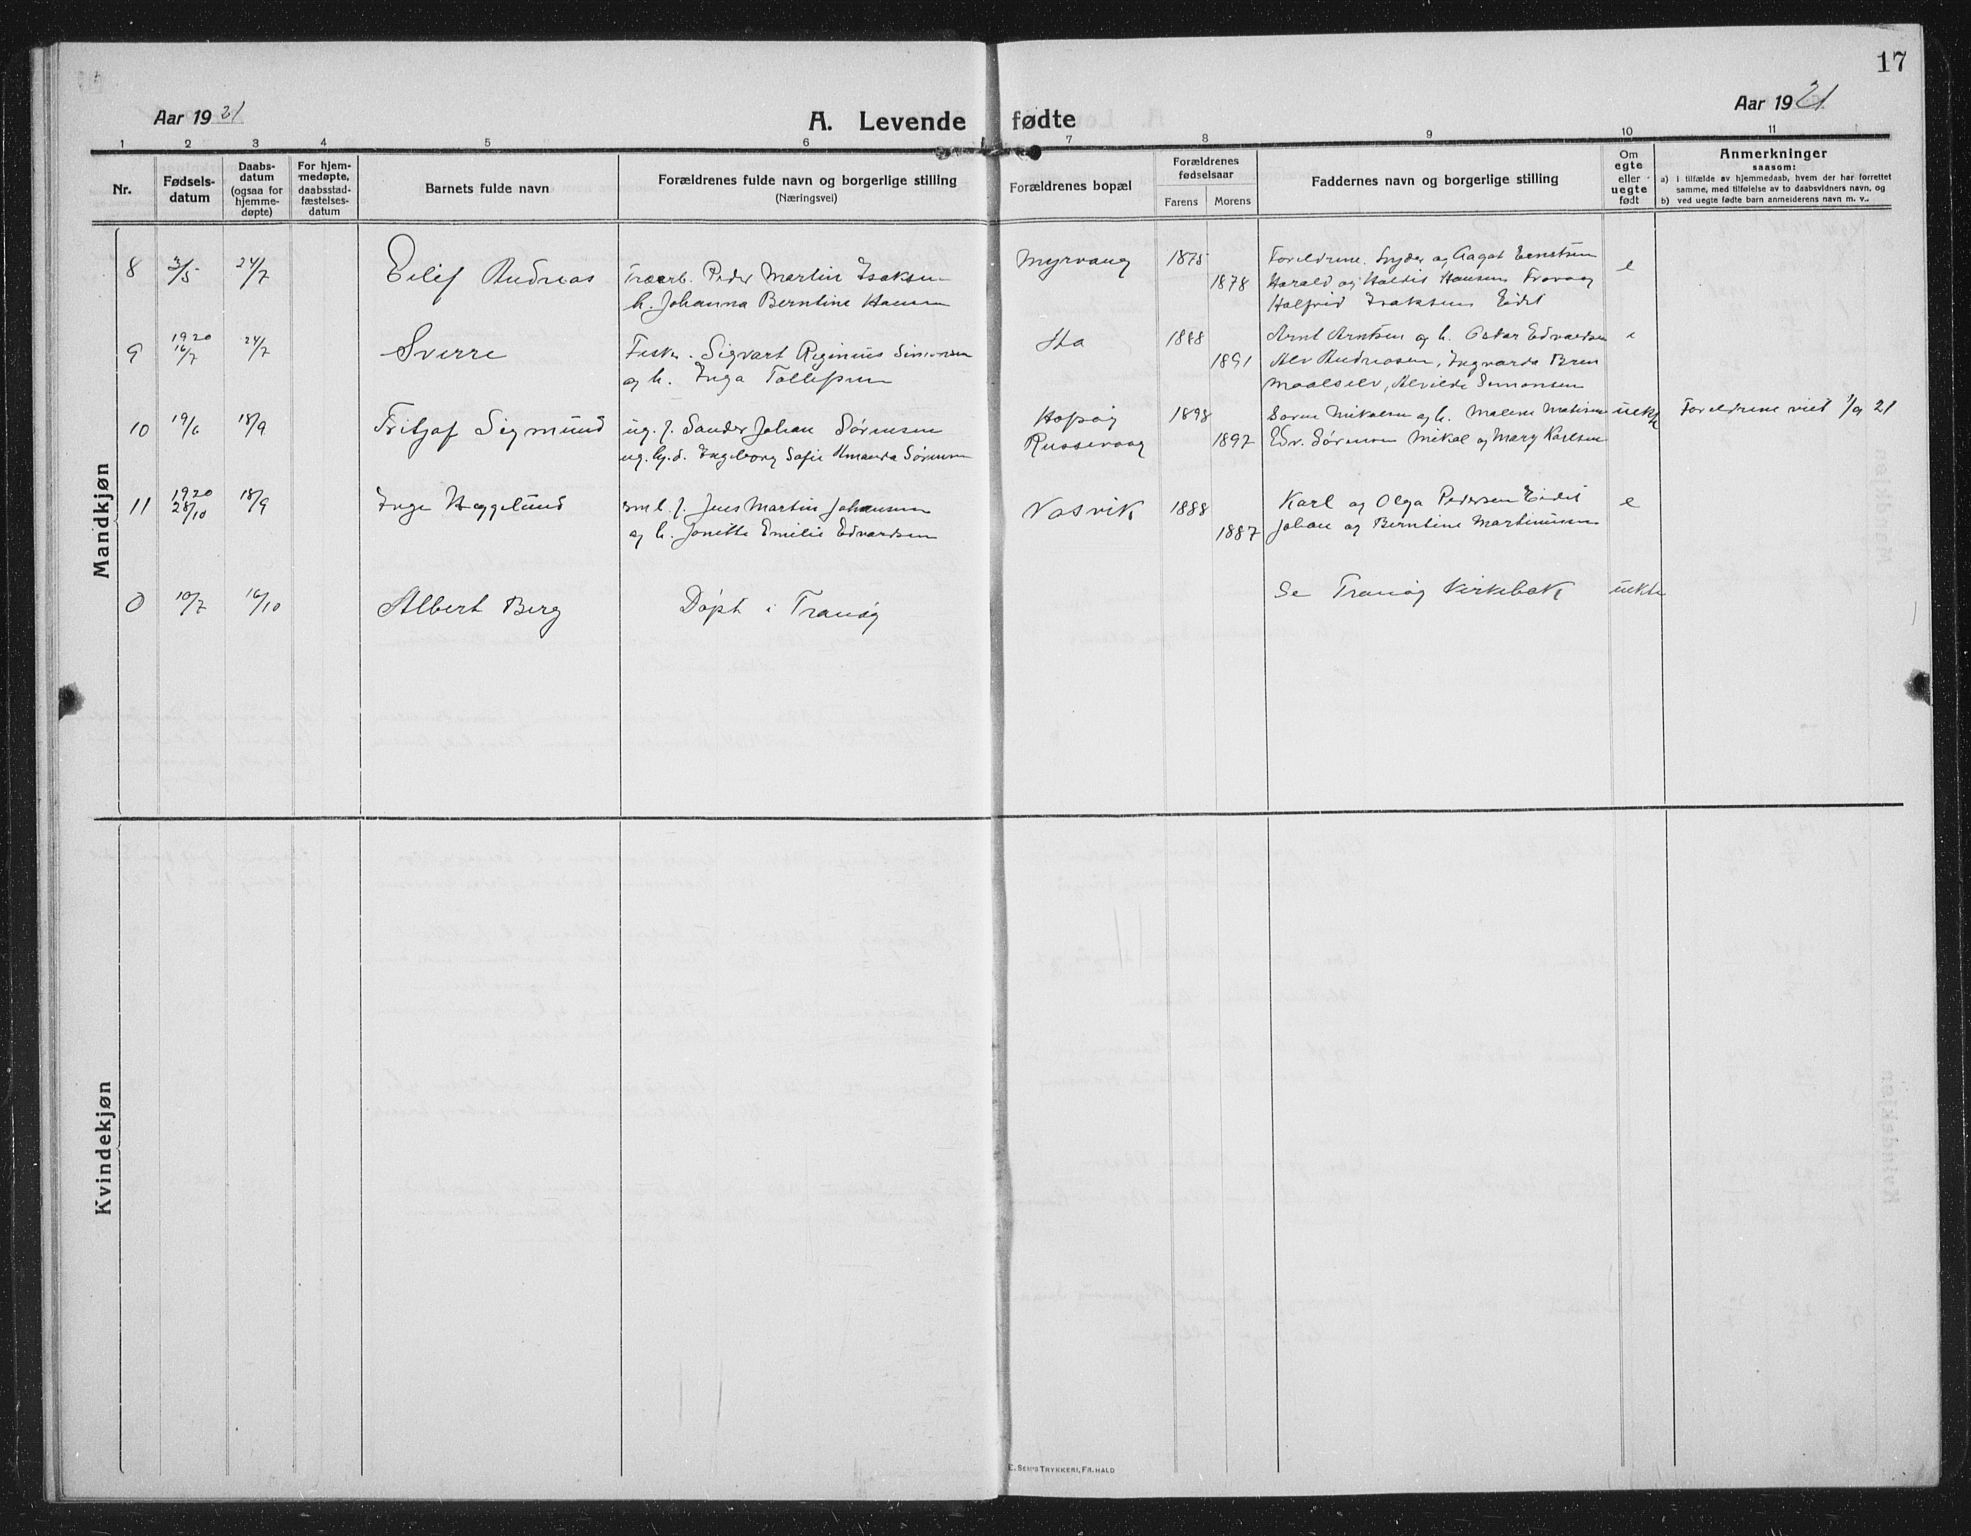 17
Aar 1921
A. Levende fødte
Aar 1921
1 2 3 4 5 6 7 8 9 10 11
Nr.
Fødsels-
datum
Daabs-
datum
(ogsaa for
hjemme-
døpte)
For hjem-
medøpte,
daabsstad-
fæstelses-
datum
Barnets fulde navn
Forældrenes fulde navn og borgerlige stilling
(Næringsvei)
Forældrenes bopæl
Forældrenes
fødselsaar
Farens Morens
Faddernes navn og borgerlige stilling
Om
egte
eller
uegte
født
Anmerkninger
saasom:
a) i tilfælde av hjemmedaab, hvem der har forrettet
samme, med tilføielse av to daabsvidners navn, og
b) ved uegte fødte barn anmelderens navn m. v..
Mandkjøn
8 3/5 24/7 Eilif Andreas
Peder Martin Isaksen
h. Johanna Berntine Hansen
Myrvang 1875
1878
Foreldrene. og Aagot Berntsen
Harald og Haldis Hansen
Halfrid Isaksen Eidet
e
9 1920
16/7 24/7 Sverre
Fisk. Sigvart Reginius Simonsen
og h. Inga Tollefsen
1888
1891
Arnt Arntsen og h. Oskar Edvardsen
Alv Andreasen, Ingvarda Bren
Maalselv, Alvilde Simonsen
e
10 19/6 18/9 Fritjof Sigmund
ug. f. Sander Johan Sørensen
ug. Ingeborg Sofie Amanda Sørensen
Hopøy
Russevaag
1898
1897
Soren Mikalsen og h. Malene
Edv. Sørensen Mikal og Mary Karlsen
uekte
Foreldrene viet 1/9 21
11 1920
28/10 18/9 Inge Heggelund
sml. f. Jens Martin Johansen
og h. Jonette Emilie Edvardsen
Vasvik 1888
1887
Karl og Olga Pedersen Eidet
Johan og Berntine Martinussen
e
0 10/7 16/10 Albert Berg
Døpt i Tranøy
Se Tranøy Kirkebok
uekte
Kvindekjøn
E. Sem's Trykkeri, Fr.hald